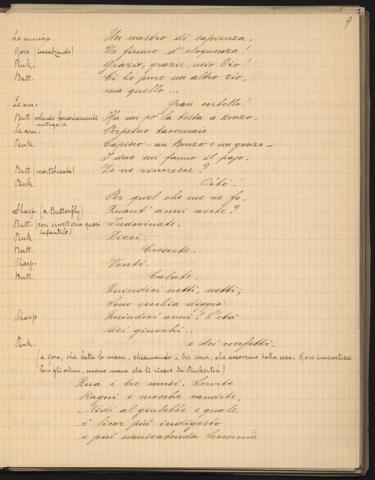 9
Le amiche Un mostro di sapienza.
Goro (incalzando) Un fiume d'eloquenza!
Pink. Grazie, grazie, mio Dio!
Butt. Ci ho pure un altro zio,
ma quello...
Le am. Gran corbello!
Butt (volendo bonariamente mitigare Ha un po' la testa a zonzo.
Le am. Perpetuo tavernaio
Pink Capisco – un Bonzo e un gonzo –
I due mi fanno il pajo.
Butt (mortificata) Ve ne rincresce?
Pink Ohibò!
Per quel che me ne fo.
Sharp. (a Butterfly) Quant' anni avete?
Butt. (con civetteria quasi infantile) Indovinate.
Pink. Dieci.
Butt. Crescete.
Sharp. Venti.
Butt. Calate.
Quindici netti, netti;
Sono vecchia diggià
Sharp Quindici anni! L'età
dei giuochi...
Pink. e dei confetti.
(a Goro, che batte le mani, chiamando i tre servi, che accorrono dalla casa: Goro impartisce
loro gli ordini, mano mano che li riceve da Pinkerton)
Qua i tre musi. Servite
Ragni e mosche candite,
Nidi al giulebbe e quale
è licor più indigesto
e più nauseabonda leccornia